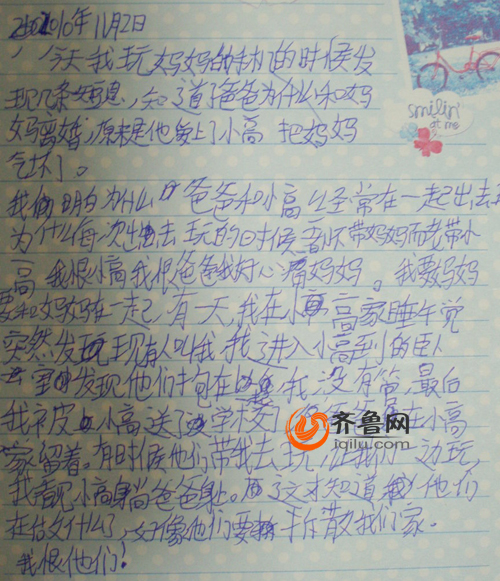 2010年11月2日
今天我玩妈妈的手机的时候发
现几条短息，知道了爸爸为什么和妈
妈离婚，原来是他爱上了小高 把妈妈
气坏了。
smilin'
at me
我明白为什么 爸爸和小高 经常在一起出去
为什么每次出去玩的时候 不带妈妈而老带小
高 我恨小高我恨爸爸我好心 妈妈。我要妈妈
要和妈妈在一起，有一天，我在小高家睡午觉
突然发现有人叫我 我 进入小高 的卧
室 发现他们 在 我没有管，最后
我被 小高送 学校 在小高
家留着。有时候他们带我去玩 让我 一边玩，
我看见小高 爸爸身上。 才知道 他们
在 什么，好像他们要 拆散我们家。
我恨他们！
齐鲁网
iqilu.com